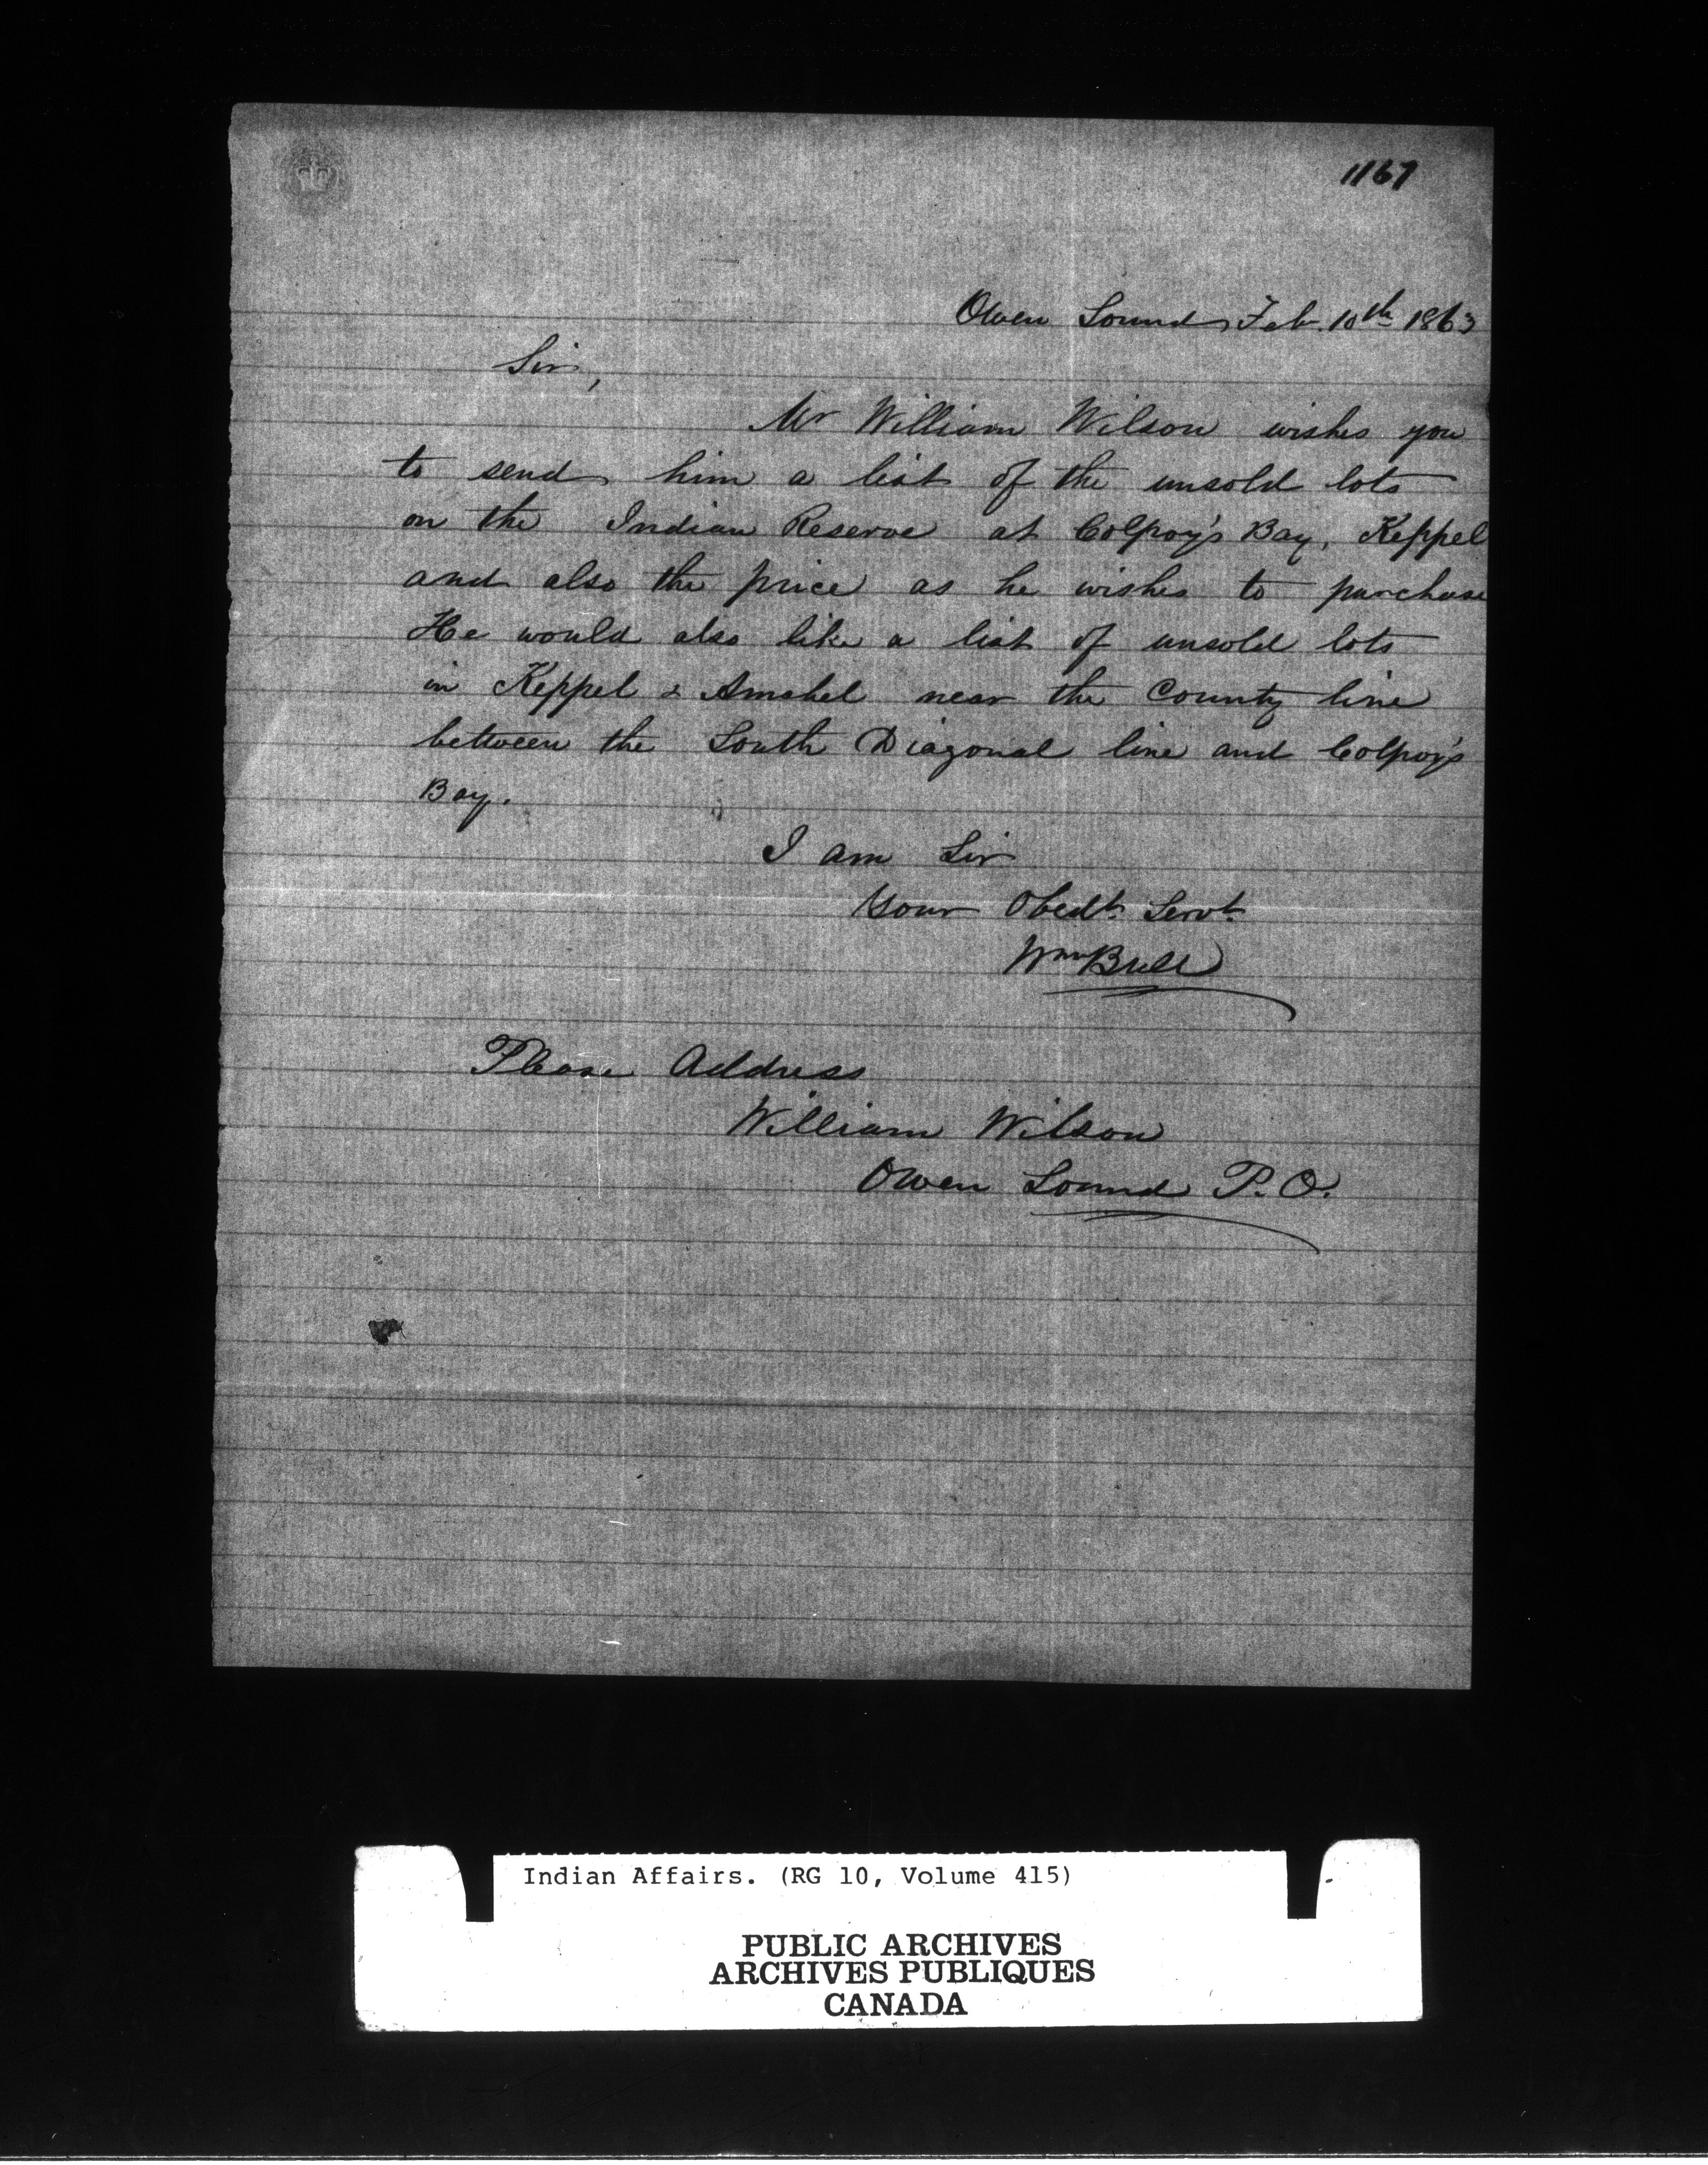 1167
Owen Sound, Feb. 10th 1863
Sir,
Mr William Wilson wishes you
to send him a list of the unsold lots
on the Indian Reserve at Colpoy's Bay, Keppel
and also the price as he wishes to purchase
He would also like a list of unsold lots
in Keppel & Amabel near the County line
between the South Diagonal line and Colpoy's
Bay.
I am Sir
Your Obedt. Servt.
Wm Bull
Please Address
William Wilson
Owen Sound P.O.
Indian Affairs. (RG 10, Volume 415)
PUBLIC ARCHIVES
ARCHIVES PUBLIQUES
CANADA